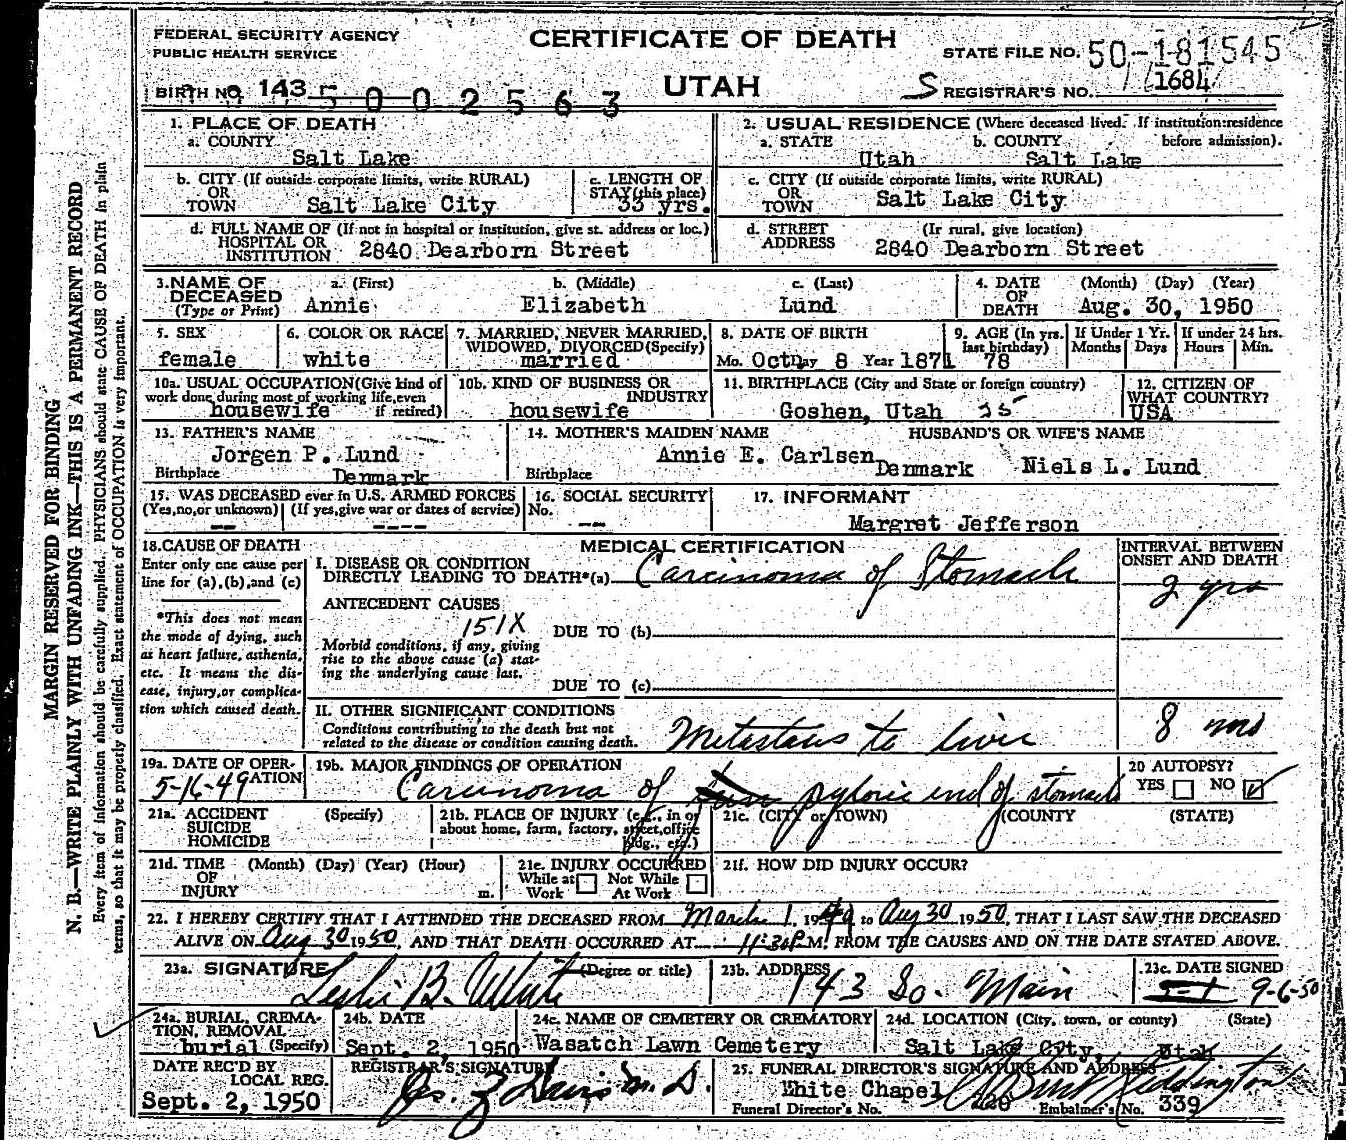 FEDERAL SECURITY AGENCY
PUBLIC HEALTH SERVICE
CERTIFICATE OF DEATH
UTAH
STATE FILE NO. 50-181545
BIRTH NO. 143 5 0 0 2 5 6 3
S REGISTRAR'S NO. 1684
1. PLACE OF DEATH
a. COUNTY
Salt Lake
2. USUAL RESIDENCE (Where deceased lived. If institution: residence before admission).
a. STATE b. COUNTY
Utah Salt Lake
b. CITY (If outside corporate limits, write RURAL)
OR
TOWN Salt Lake City
c. LENGTH OF
STAY (this place)
33 yrs.
c. CITY (If outside corporate limits, write RURAL)
OR
TOWN Salt Lake City
d. FULL NAME OF (If not in hospital or institution, give st. address or loc.)
HOSPITAL OR
INSTITUTION 2840 Dearborn Street
d. STREET (If rural, give location)
ADDRESS 2840 Dearborn Street
3. NAME OF
DECEASED
(Type or Print)
a. (First) b. (Middle) c. (Last)
Annie Elizabeth Lund
4. DATE
OF
DEATH
(Month) (Day) (Year)
Aug. 30, 1950
5. SEX
female
6. COLOR OR RACE
white
7. MARRIED, NEVER MARRIED,
WIDOWED, DIVORCED (Specify)
married
8. DATE OF BIRTH
Mo. Oct Day 8 Year 1871
9. AGE (In yrs.
last birthday)
78
If Under 1 Yr.
Months Days
If under 24 hrs.
Hours Min.
10a. USUAL OCCUPATION (Give kind of
work done during most of working life, even
if retired)
housewife
10b. KIND OF BUSINESS OR
INDUSTRY
housewife
11. BIRTHPLACE (City and State or foreign country)
Goshen, Utah
12. CITIZEN OF
WHAT COUNTRY?
USA
13. FATHER'S NAME
Jorgen P. Lund
Birthplace Denmark
14. MOTHER'S MAIDEN NAME
Annie E. Carlsen
Birthplace Denmark
HUSBAND'S OR WIFE'S NAME
Niels L. Lund
15. WAS DECEASED ever in U.S. ARMED FORCES
(Yes, no, or unknown) (If yes, give war or dates of service)
-- ----
16. SOCIAL SECURITY
No.
--
17. INFORMANT
Margret Jefferson
18. CAUSE OF DEATH
Enter only one cause per
line for (a), (b), and (c)
*This does not mean
the mode of dying, such
as heart failure, asthenia,
etc. It means the dis-
ease, injury, or complica-
tion which caused death.
MEDICAL CERTIFICATION
I. DISEASE OR CONDITION
DIRECTLY LEADING TO DEATH*(a) Carcinoma of Stomach
ANTECEDENT CAUSES
151X
DUE TO (b)
Morbid conditions, if any, giving
rise to the above cause (a) stat-
ing the underlying cause last.
DUE TO (c)
INTERVAL BETWEEN
ONSET AND DEATH
2 yrs
II. OTHER SIGNIFICANT CONDITIONS
Conditions contributing to the death but not
related to the disease or condition causing death.
Metastasis to liver
8 mos
19a. DATE OF OPER-
ATION
5-16-49
19b. MAJOR FINDINGS OF OPERATION
Carcinoma of pyloric end of stomach
20 AUTOPSY?
YES NO
21a. ACCIDENT (Specify)
SUICIDE
HOMICIDE
21b. PLACE OF INJURY (e.g., in or
about home, farm, factory, street, office
bldg., etc.)
21c. (CITY or TOWN) (COUNTY) (STATE)
21d. TIME (Month) (Day) (Year) (Hour)
OF
INJURY m.
21e. INJURY OCCURRED
While at Not While
Work At Work
21f. HOW DID INJURY OCCUR?
22. I HEREBY CERTIFY THAT I ATTENDED THE DECEASED FROM March 1, 1949 to Aug 30 1950, THAT I LAST SAW THE DECEASED
ALIVE ON Aug 30 1950, AND THAT DEATH OCCURRED AT 11:30P M. FROM THE CAUSES AND ON THE DATE STATED ABOVE.
23a. SIGNATURE (Degree or title)
Leslie B. White
23b. ADDRESS
143 So. Main
23c. DATE SIGNED
9-6-50
24a. BURIAL, CREMA-
TION, REMOVAL
burial (Specify)
24b. DATE
Sept. 2, 1950
24c. NAME OF CEMETERY OR CREMATORY
Wasatch Lawn Cemetery
24d. LOCATION (City, town, or county) (State)
Salt Lake City, Utah
DATE REC'D BY
LOCAL REG.
Sept. 2, 1950
REGISTRAR'S SIGNATURE
M. D.
25. FUNERAL DIRECTOR'S SIGNATURE AND ADDRESS
White Chapel
Funeral Director's No. Embalmer's No. 339
MARGIN RESERVED FOR BINDING
N. B.—WRITE PLAINLY WITH UNFADING INK—THIS IS A PERMANENT RECORD
Every item of information should be carefully supplied. PHYSICIANS should state CAUSE OF DEATH in plain
terms, so that it may be properly classified. Exact statement of OCCUPATION is very important.